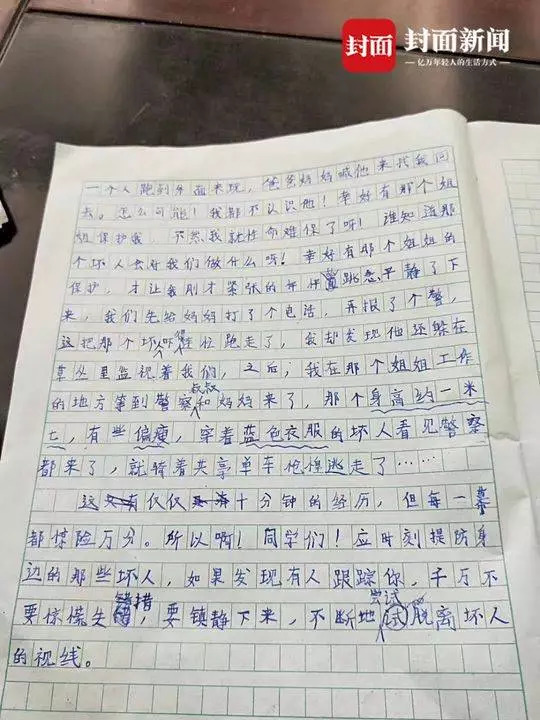 封面 封面新闻
亿万年轻人的生活方式
一个人跑到外面来玩，爸爸妈妈喊他来找我回
去。怎么可能！我都不认识他！幸好有那个姐
姐保护我，不然我就性命难保了呀！谁知道那
个坏人会对我们做什么呀！幸好有那个姐姐的
保护，才让我刚才紧张的怦怦直跳恶平静了下
来，我们先给妈妈打了个电话，再报了个警，
这把那个坏人吓得连忙跑走了，我却发现他还躲在
草丛里监视着我们，之后；我在那个姐姐工作
的地方等到警察叔叔和妈妈来了，那个身高约一米
七，有些偏瘦，穿着蓝色衣服的坏人看见警察
都来了，就骑着共享单车 逃走了……
这仅仅十分钟的经历，但每一幕
都惊险万分。所以啊！同学们！应时刻提防身
边的那些坏人，如果发现有人跟踪你，千万不
要惊慌失措，要镇静下来，不断地尝试脱离坏人
的视线。